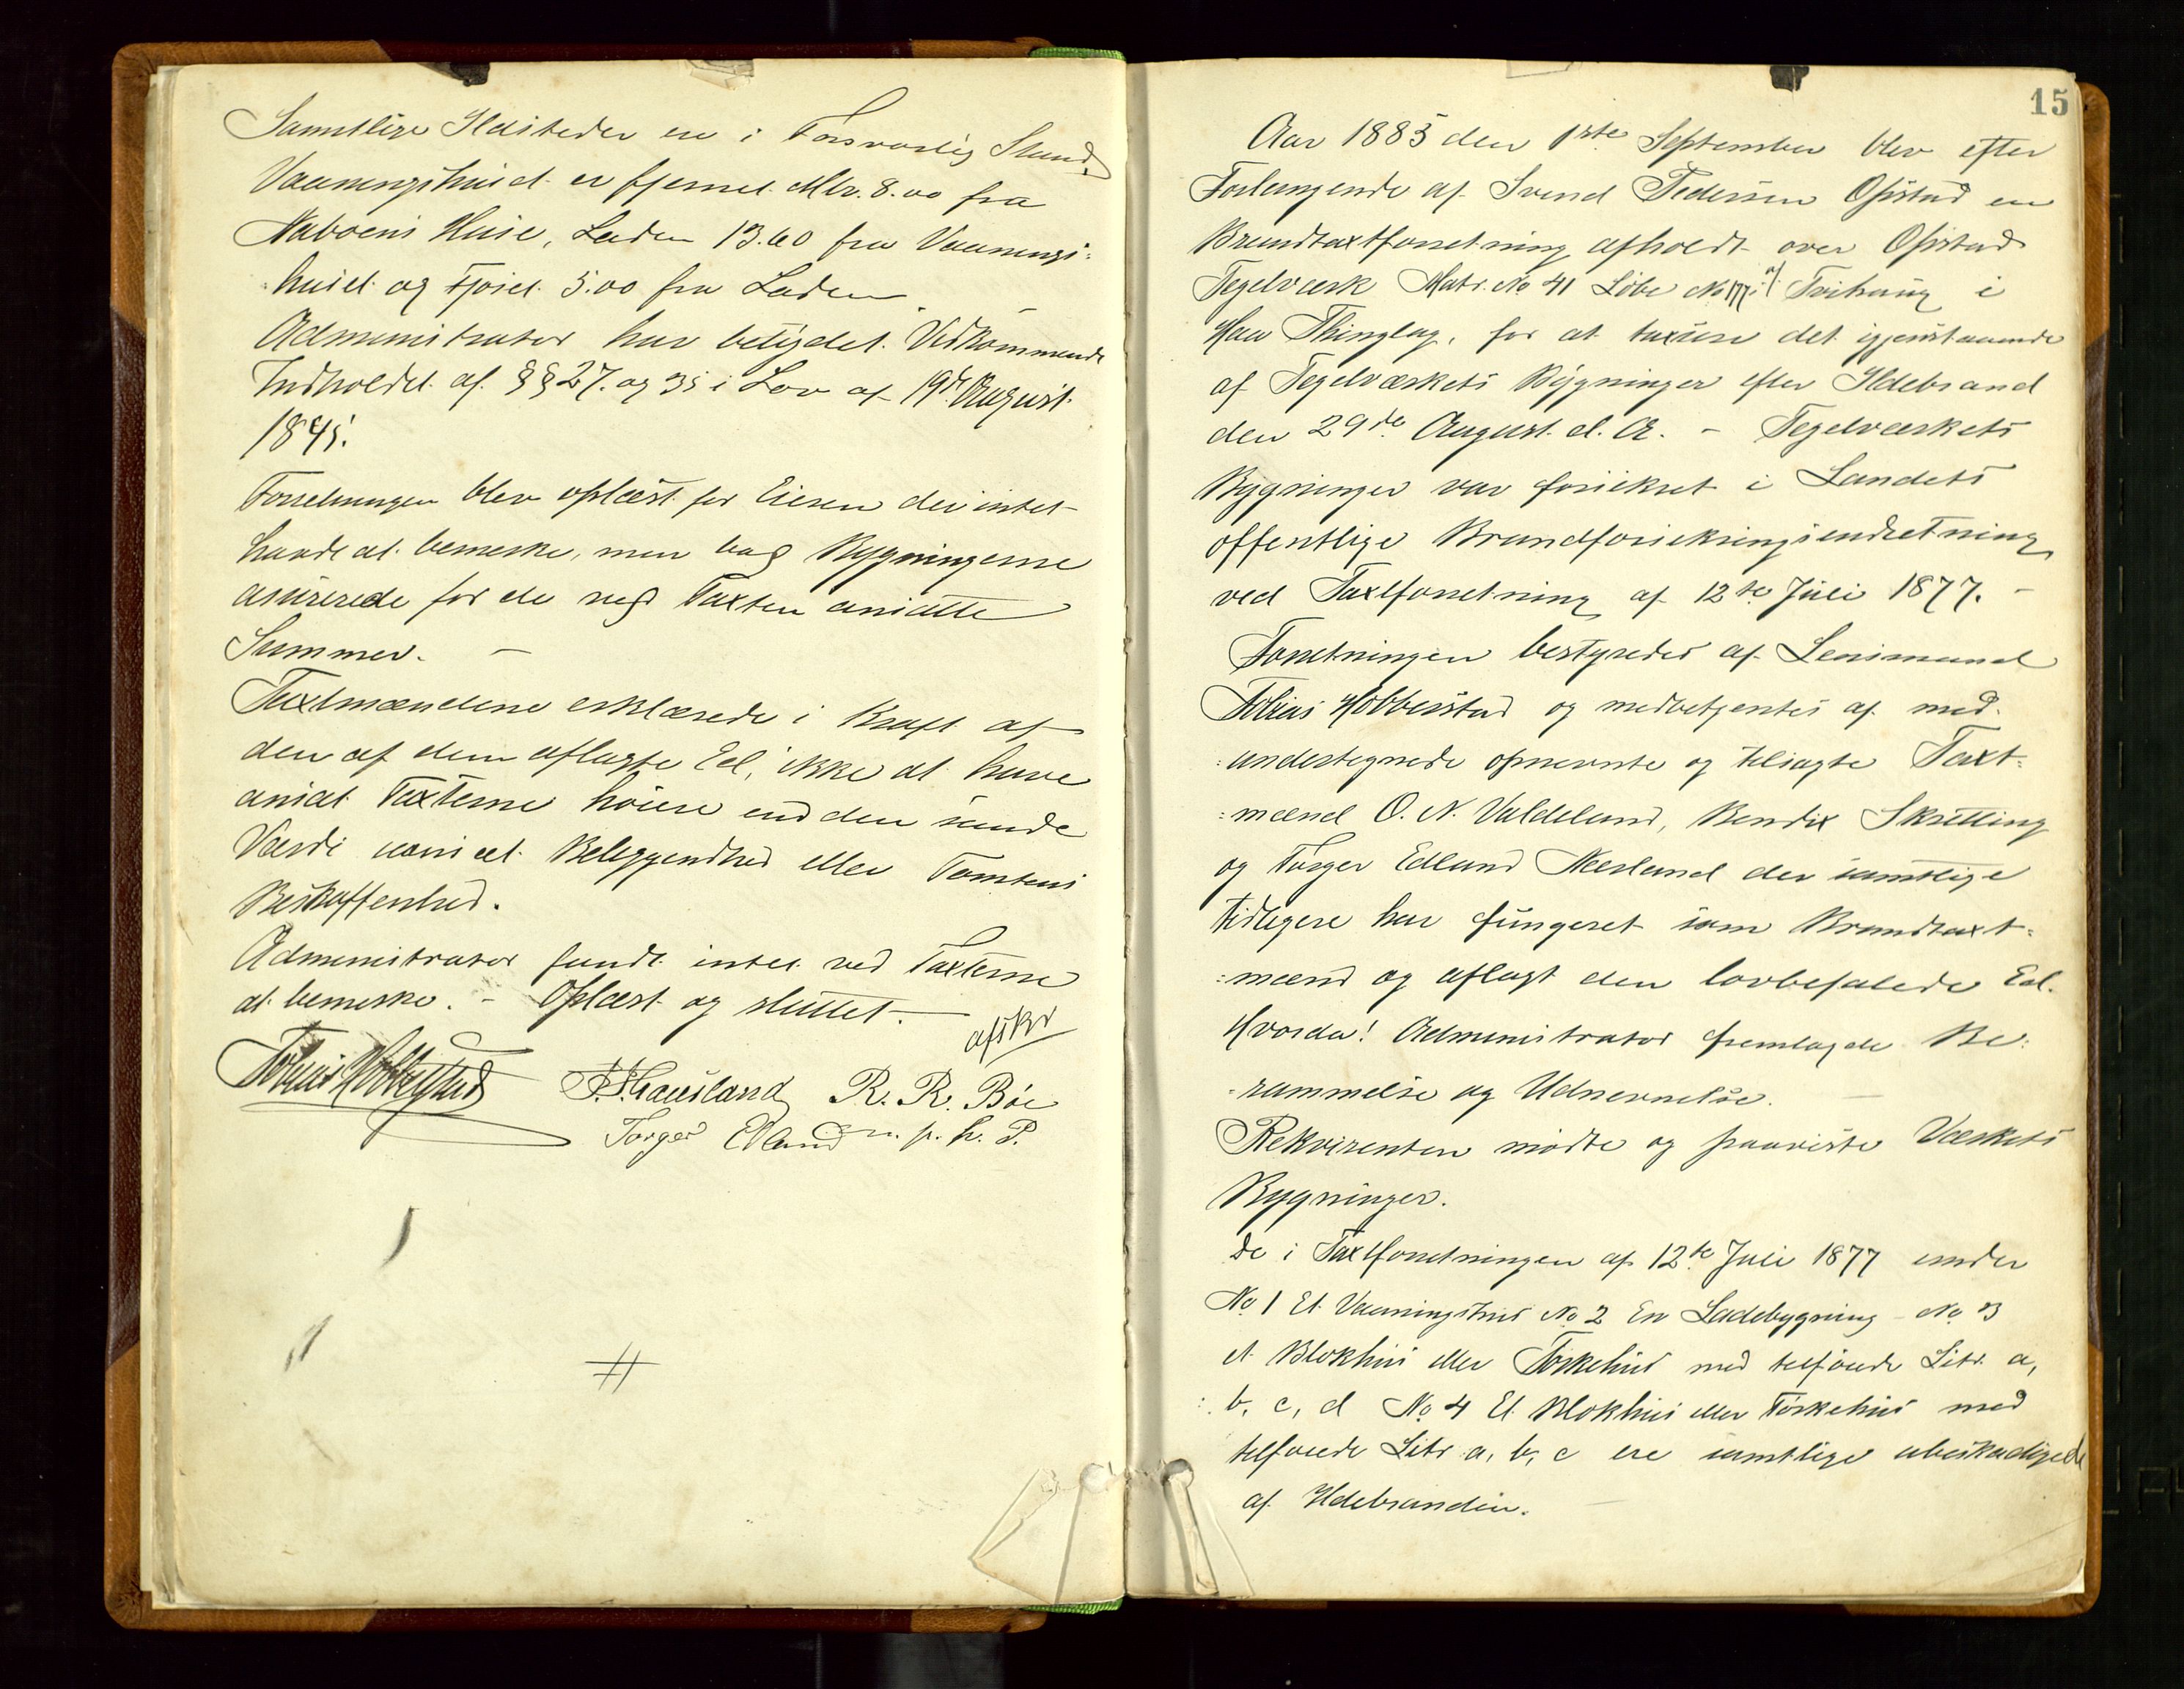 Samtlige Ildsteder ere i Forsvarlig Stand.
Vaaningshuset er fjernet Mtr. 8.00 fra
Naboens Huse, Laden 13.60 fra Vaanings-
huset og Fjøset 5.00 fra Laden.
Administrator har betydet Vedkommende
Indholdet af §§ 27 og 35 i Lov af 19de August
1845.
Forretningen blev oplæst for Eieren der intet
havde at bemerke, men bad Bygningerne
asürerede for de ved Taxten ansatte
Summer. -
Taxtmændene erklærede i Kraft af
den af dem aflagte Ed, ikke at have
ansat Taxterne høiere end den sande
Værdi uanset Beliggendhed eller Tomtens
Beskaffenhed.
Administrator fandt intet ved Taxterne
at bemerke. - Oplæst og sluttet. -
afskr
Tobias Hobberstad T. T. Hausland R. R. Bøe
Torger Edland m. p. h. P.
15
Aar 1885 den 1ste September blev efter
Forlangende af Svend Pedersen Opstad en
Brandtaxtforretning afholdt over Opstad
Tegelværk Matr. No 41 Löbe No 177 i af Tvihaug i
Haa Thinglag, for at taxere det igjenstaaende
af Tegelværkets Bygninger efter Ildebrand
den 29de August d. A. - Tegelværkets
Bygninger var forsikret i Landets
offentlige Brandforsikringsindretning
ved Taxtforretning af 12te Juli 1877. -
Forretningen bestyredes af Lensmand
Tobias Hobberstad og medbetjentes af med-
undertegnede opnevnte og tilsagte Taxt-
mænd O. N. Valdeland, Bendix Skretting
og Torger Edland Nærland der samtlige
tidligere har fungeret som Brandtaxt-
mænd og aflagt den lovbefalede Ed.
Hvorda! Administrator fremlagde Be-
rammelse og Udnevnelse. -
Rekvirenten mødte og paaviste Værkets
Bygninger.
De i Taxtforretningen af 12te Juli 1877 under
No 1 Et Vaaningshus No 2 En Ladebygning No 3
et Blokhus eller Tørkehus med tilføiede Litr. a,
b, c, d No 4 Et Blokhus eller Tørkehus med
tilføiede Litr a, b, c ere samtlige ubeskadigede
af Ildebranden.